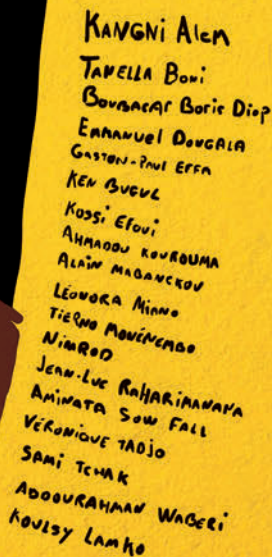 KANGNI ALEM
TANELLA BONI
BOUBACAR BORIS DIOP
EMMANUEL DONGALA
GASTON-PAUL EFFA
KEN BUGUL
KOSSI EFOUI
AHMADOU KOUROUMA
ALAIN MABANCKOU
LÉONORA MIANO
TIERNO MONÉNEMBO
NIMROD
JEAN-LUC RAHARIMANANA
AMINATA SOW FALL
VÉRONIQUE TADJO
SAMI TCHAK
ABDOURAHMAN WABERI
KOULSY LAMKO